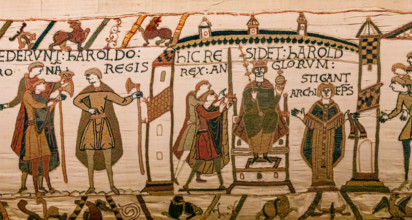 EDERVNT: hAROLDO:
RO NA REGIS
hIC RE SIDET: hAROLD
REX: AN GLORVM:
STIGANT
ARChI EPS